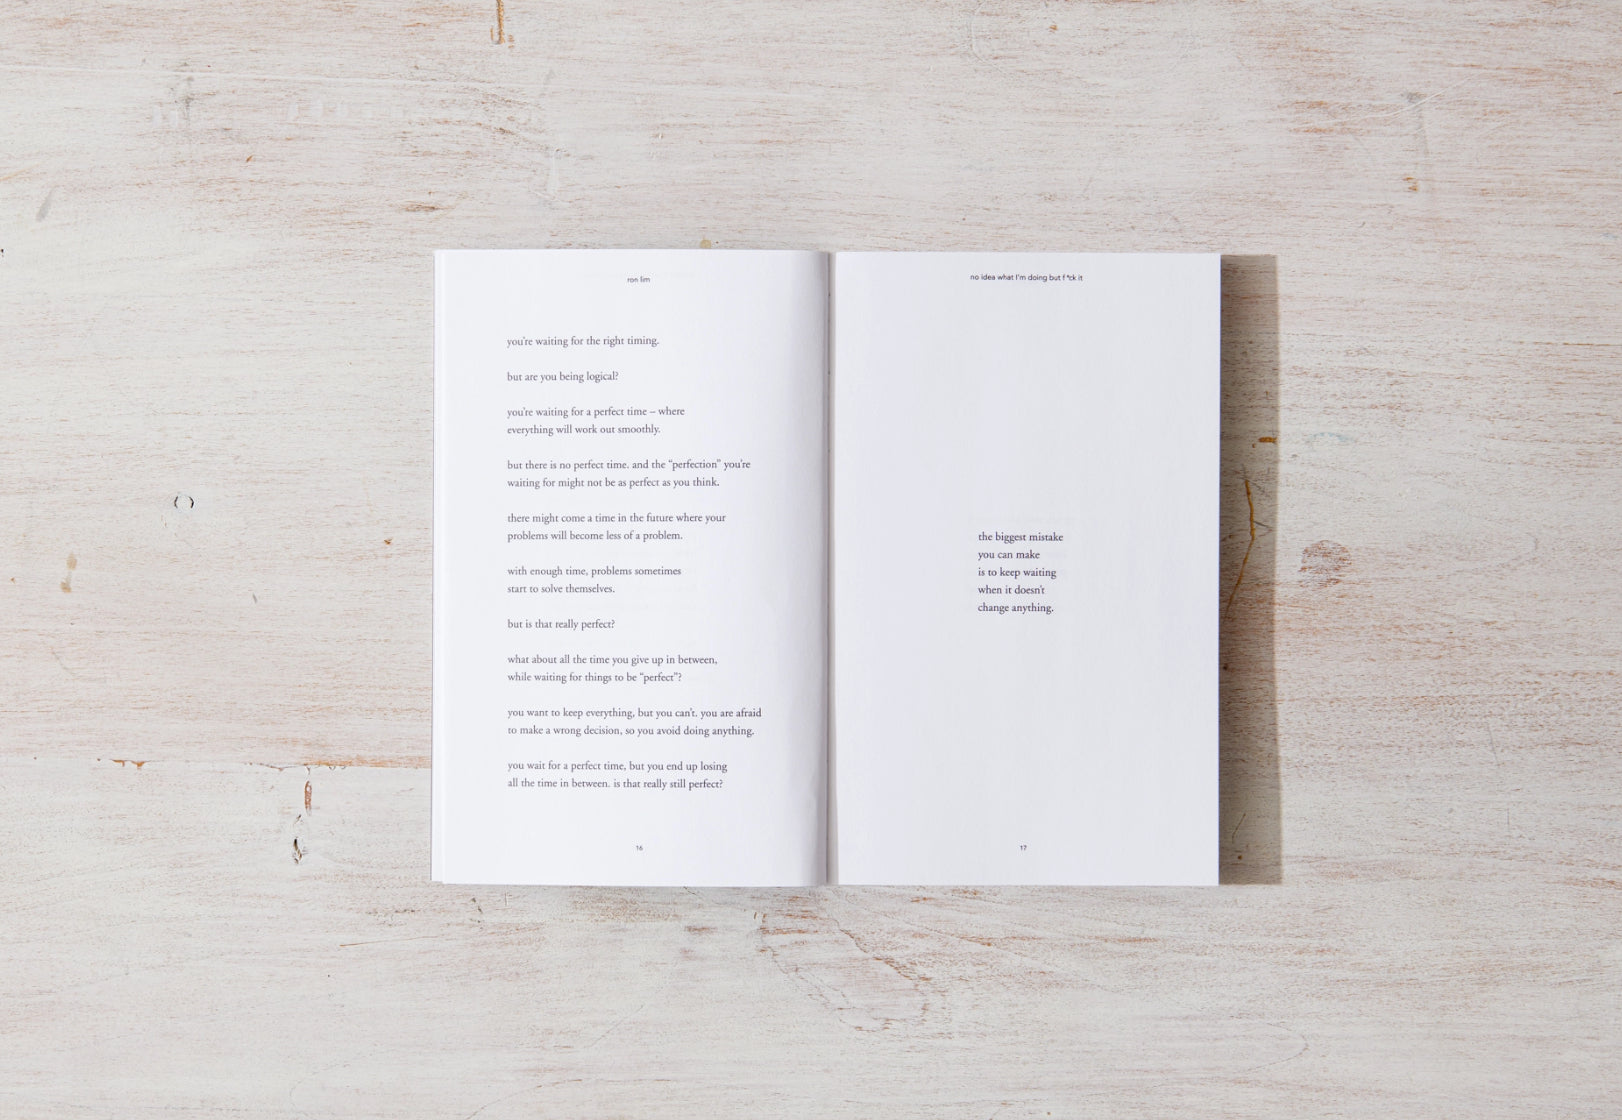 ron lim
you're waiting for the right timing.
but are you being logical?
you're waiting for a perfect time – where
everything will work out smoothly.
but there is no perfect time. and the “perfection” you're
waiting for might not be as perfect as you think.
there might come a time in the future where your
problems will become less of a problem.
with enough time, problems sometimes
start to solve themselves.
but is that really perfect?
what about all the time you give up in between,
while waiting for things to be “perfect”?
you want to keep everything, but you can't. you are afraid
to make a wrong decision, so you avoid doing anything.
you wait for a perfect time, but you end up losing
all the time in between. is that really still perfect?
16
no idea what I'm doing but f*ck it
the biggest mistake
you can make
is to keep waiting
when it doesn't
change anything.
17